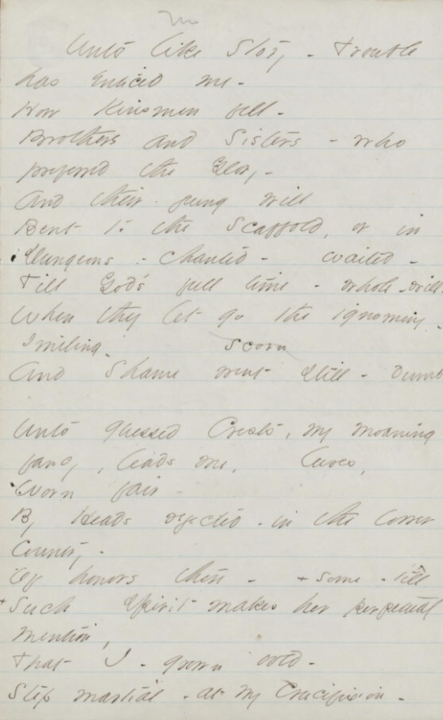 Unto like Story - Trouble
has enticed me -
How Kinsmen fell -
Brothers and Sisters - who
preferred the Glory -
And their young will
Bent to the Scaffold, or in
Dungeons - chanted - waited -
Till God's full time - whole - will
When they let go the ignominy -
Smiling -
scorn
And Shame went still - Dumb
Unto guessed Crests, my moaning
fancy, leads me, lures,
Worn fair
By Heads rejected - in the lower
Country -
Of honors there - + Some - till
+ Such Spirit makes her perpetual
mention,
That I - grown bold -
Step martial - at my Crucifixion -